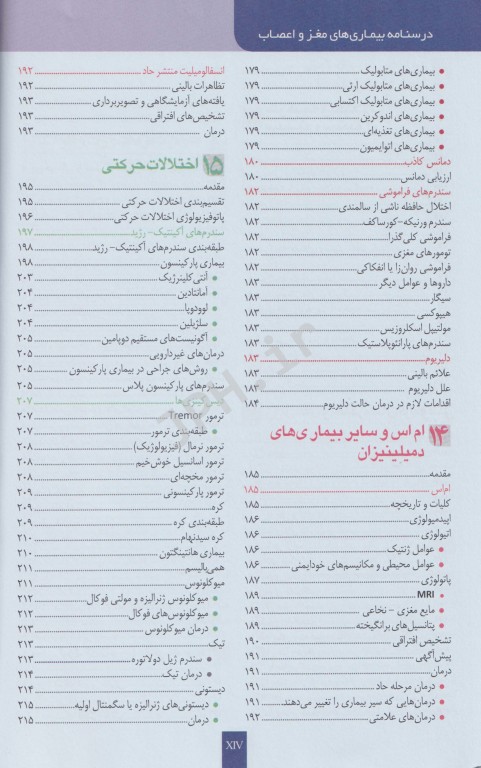 درسنامه بیماری‌های مغز و اعصاب
• بیماری‌های متابولیک ۱۷۹
• بیماری‌های متابولیک ارثی ۱۷۹
• بیماری‌های متابولیک اکتسابی ۱۷۹
• بیماری‌های اندوکرین ۱۷۹
• بیماری‌های تغذیه‌ای ۱۷۹
• بیماری‌های اتوایمیون ۱۷۹
دمانس کاذب ۱۸۰
ارزیابی دمانس ۱۸۰
سندرم‌های فراموشی ۱۸۲
اختلال حافظه ناشی از سالمندی ۱۸۲
سندرم ورنیکه-کورساکف ۱۸۲
فراموشی کلی‌گذرا ۱۸۲
تومورهای مغزی ۱۸۲
فراموشی روان‌زا یا انفکاکی ۱۸۲
داروها و عوامل دیگر ۱۸۳
سیگار ۱۸۳
هیپوکسی ۱۸۳
مولتیپل اسکلروزیس ۱۸۳
سندرم‌های پارانئوپلاستیک ۱۸۳
دلیریوم ۱۸۳
علائم بالینی ۱۸۳
علل دلیریوم ۱۸۳
اقدامات لازم در درمان حالت دلیریوم ۱۸۴
۱۴ ام اس و سایر بیماری‌های
دمیلینیزان
مقدمه ۱۸۵
ام‌اس ۱۸۵
کلیات و تاریخچه ۱۸۵
اپیدمیولوژی ۱۸۶
اتیولوژی ۱۸۶
• عوامل ژنتیک ۱۸۶
• عوامل محیطی و مکانیسم‌های خودایمنی ۱۸۶
پاتولوژی ۱۸۷
• MRI ۱۸۹
• مایع مغزی - نخاعی ۱۸۹
• پتانسیل‌های برانگیخته ۱۸۹
تشخیص افتراقی ۱۹۰
پیش‌آگهی ۱۹۱
درمان ۱۹۱
• درمان مرحله حاد ۱۹۱
• درمان‌هایی که سیر بیماری را تغییر می‌دهند ۱۹۱
• درمان‌های علامتی ۱۹۲
انسفالومیلیت منتشر حاد ۱۹۲
تظاهرات بالینی ۱۹۲
یافته‌های آزمایشگاهی و تصویربرداری ۱۹۳
تشخیص‌های افتراقی ۱۹۳
درمان ۱۹۳
۱۵ اختلالات حرکتی
مقدمه ۱۹۵
تقسیم‌بندی اختلالات حرکتی ۱۹۵
پاتوفیزیولوژی اختلالات حرکتی ۱۹۶
سندرم‌های آکینتیک- رژید ۱۹۷
طبقه‌بندی سندرم‌های آکینتیک- رژید ۱۹۸
بیماری پارکینسون ۱۹۸
• آنتی‌کلینرژیک ۲۰۳
• آمانتادین ۲۰۴
• لوودوپا ۲۰۴
• سلژیلین ۲۰۴
• آگونیست‌های مستقیم دوپامین ۲۰۵
درمان‌های غیردارویی ۲۰۵
• روش‌های جراحی در بیماری پارکینسون ۲۰۵
سندرم‌های پارکینسون پلاس ۲۰۵
۲۰۷
ترمور Tremor ۲۰۷
• طبقه‌بندی ترمور ۲۰۷
ترمور نرمال (فیزیولوژیک) ۲۰۸
ترمور اسانسیل خوش‌خیم ۲۰۸
ترمور مخچه‌ای ۲۰۸
ترمور پارکینسونی ۲۰۹
کره ۲۰۹
طبقه‌بندی کره ۲۰۹
کره سیدنهام ۲۱۰
بیماری هانتینگتون ۲۱۰
همی‌بالیسم ۲۱۱
میوکلونوس ۲۱۱
• میوکلونوس ژنرالیزه و مولتی فوکال ۲۱۲
• میوکلونوس‌های فوکال ۲۱۲
• درمان میوکلونوس ۲۱۳
تیک ۲۱۳
• سندرم ژیل دولاتوره ۲۱۳
• درمان تیک ۲۱۴
دیستونی ۲۱۴
• دیستونی‌های ژنرالیزه یا سگمنتال اولیه ۲۱۵
• درمان ۲۱۵
XIV